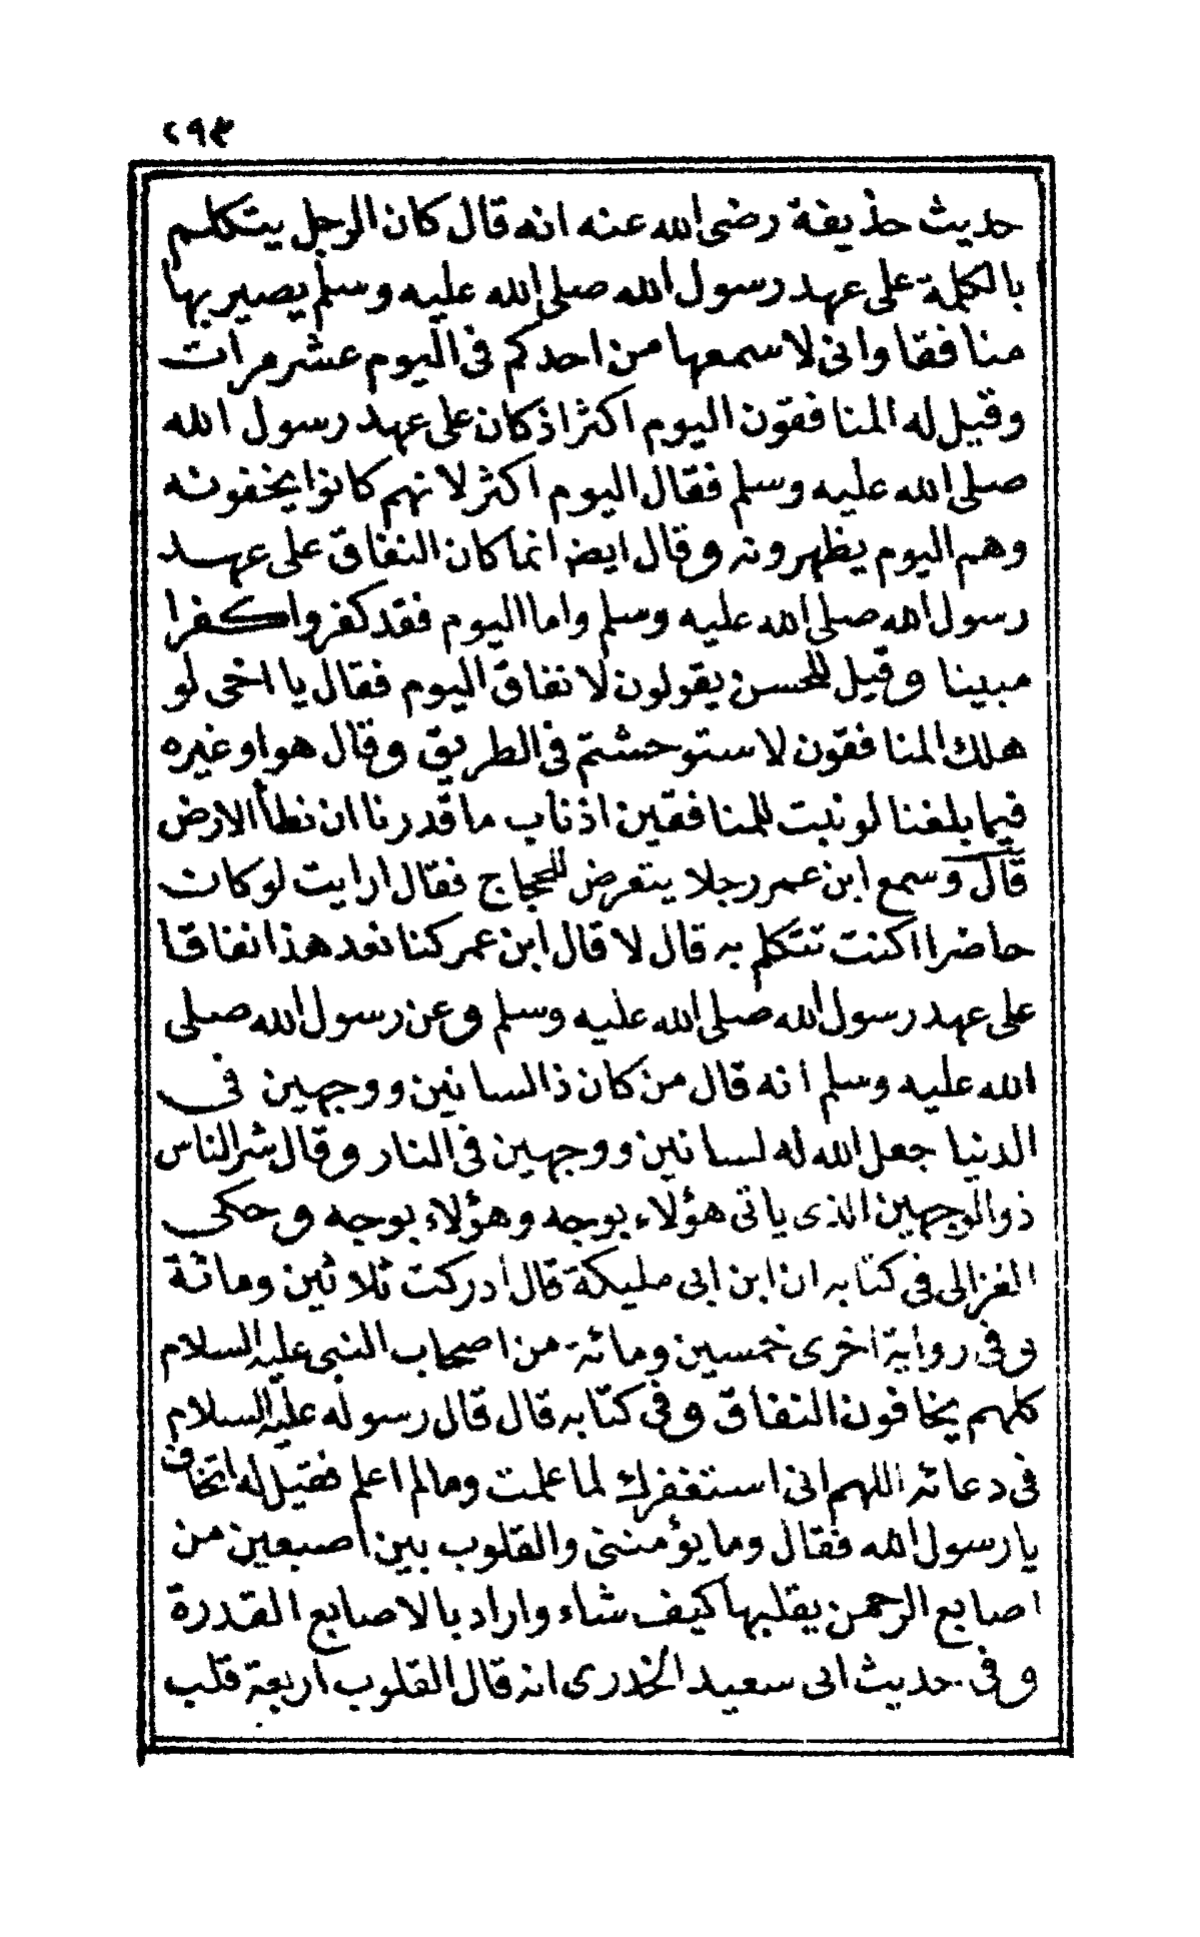 ٢٩٣
حديث حذيفة رضى الله عنه انه قال كان الرجل يتكلم
بالكلمة على عهد رسول الله صلى الله عليه وسلم يصير بها
منافقا وانى لاسمعها من احدكم فى اليوم عشر مرات
وقيل له المنافقون اليوم اكثر اذ كان على عهد رسول الله
صلى الله عليه وسلم فقال اليوم اكثر لانهم كانوا يخفونه
وهم اليوم يظهرونه وقال ايض انما كان النفاق على عهد
رسول الله صلى الله عليه وسلم واما اليوم فقد كفروا كفرا
مبينا وقيل للحسن يقولون لا نفاق اليوم فقال يا اخى لو
هلك المنافقون لاستوحشتم فى الطريق وقال هو او غيره
فيما بلغنا لو نبت للمنافقين اذناب ما قدرنا ان نطأ الارض
قال وسمع ابن عمر رجلا يتعرض للحجاج فقال ارايت لو كان
حاضرا اكنت تتكلم به قال لا قال ابن عمر كنا نعد هذا نفاقا
على عهد رسول الله صلى الله عليه وسلم وعن رسول الله صلى
الله عليه وسلم انه قال من كان ذا لسانين ووجهين فى
الدنيا جعل الله له لسانين ووجهين فى النار وقال شر الناس
ذو الوجهين الذى ياتى هؤلاء بوجه وهؤلاء بوجه وحكى
الغزالى فى كتابه ان ابن ابى مليكة قال أدركت ثلاثين ومائة
وفى رواية اخرى خمسين ومائة من اصحاب النبى عليه السلام
كلهم يخافون النفاق وفى كتابه قال قال رسوله عليه السلام
فى دعائه اللهم انى استغفرك لما علمت ومالم اعلم فقيل له اتخاف
يا رسول الله فقال وما يؤمننى والقلوب بين اصبعين من
اصابع الرحمن يقلبها كيف شاء واراد بالاصابع القدرة
وفى حديث ابى سعيد الخدرى انه قال القلوب اربعة قلب